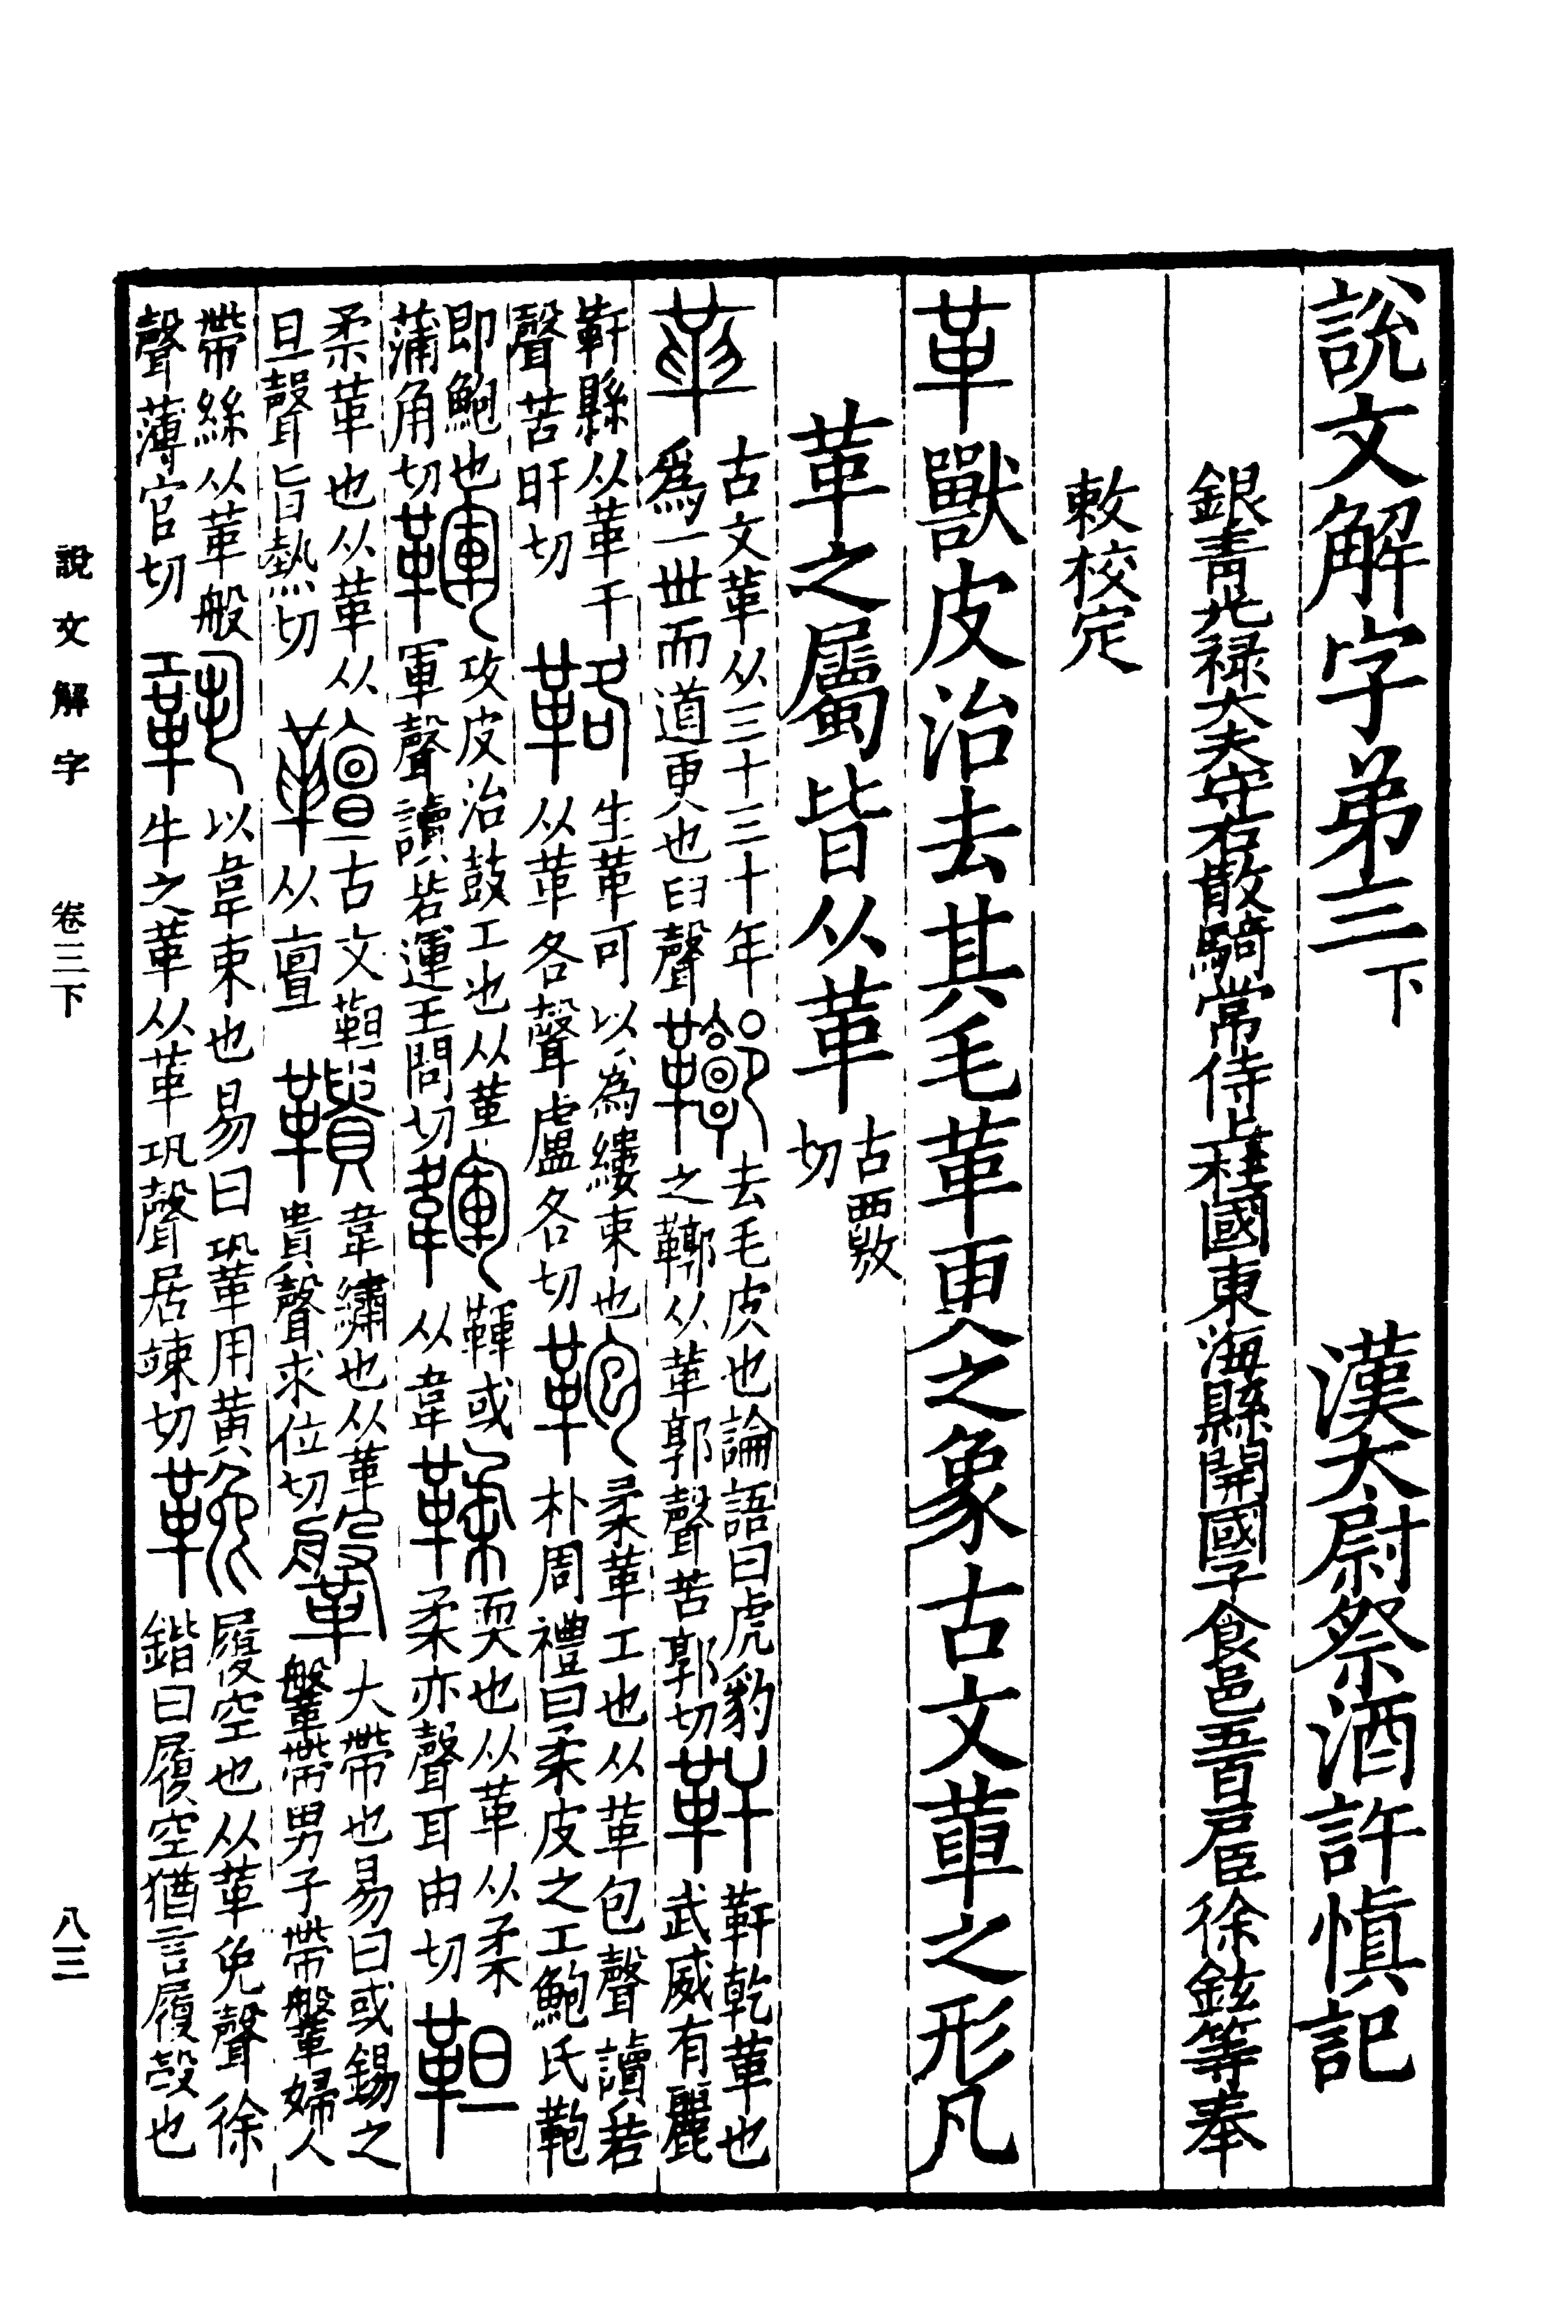 說文解字弟三下　漢太尉祭酒許慎記
銀青光禄大夫守右散騎常侍上柱國東海縣開國子食邑五百戶臣徐鉉等奉
敕校定
革獸皮治去其毛革更之象古文革之形凡
革之屬皆从革古覈切
𠦶古文革从三十三十年爲一世而道更也臼聲鞹去毛皮也論語曰虎豹之鞹从革郭聲苦郭切靬靬乾革也武威有麗
靬縣从革干聲苦旰切𩊚生革可以為縷束也从革各聲盧各切鞄柔革工也从革包聲讀若朴周禮曰柔皮之工鮑氏鞄
即鮑也蒲角切䩵攻皮治鼓工也从革軍聲讀若運王問切韗䩵或从韋鞣耎也从革从柔柔亦聲耳由切靼
柔革也从革从旦聲旨熱切𩍕古文靼从亶鞼韋繡也从革貴聲求位切鞶大帶也易曰或錫之鞶帶男子帶鞶婦人
帶絲从革般聲薄官切鞏以韋束也易曰鞏用黄牛之革从革巩聲居竦切鞔履空也从革免聲徐鍇曰履空猶言履㲉也
說文解字　卷三下　八三